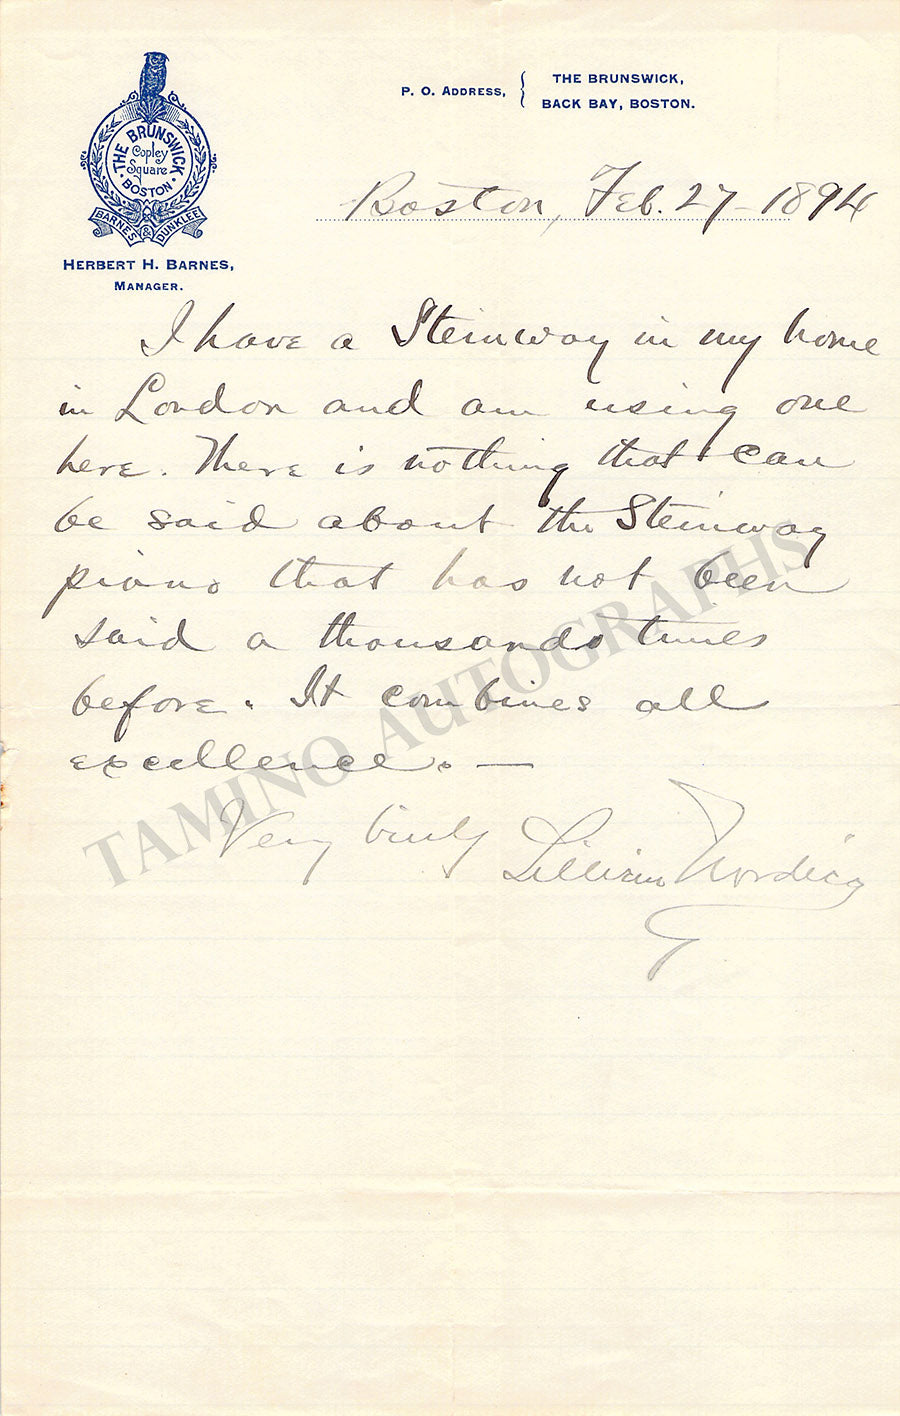 P. O. ADDRESS, { THE BRUNSWICK,
BACK BAY, BOSTON.
THE BRUNSWICK
Copley
Square
BOSTON
BARNES & DUNKLEE
HERBERT H. BARNES,
MANAGER.
Boston, Feb. 27 - 1894
I have a Steinway in my home
in London and am using one
here. There is nothing that can
be said about the Steinway
piano that has not been
said a thousands times
before. It combines all
excellence. —
Very truly Lillian Nordica
TAMINO AUTOGRAPHS